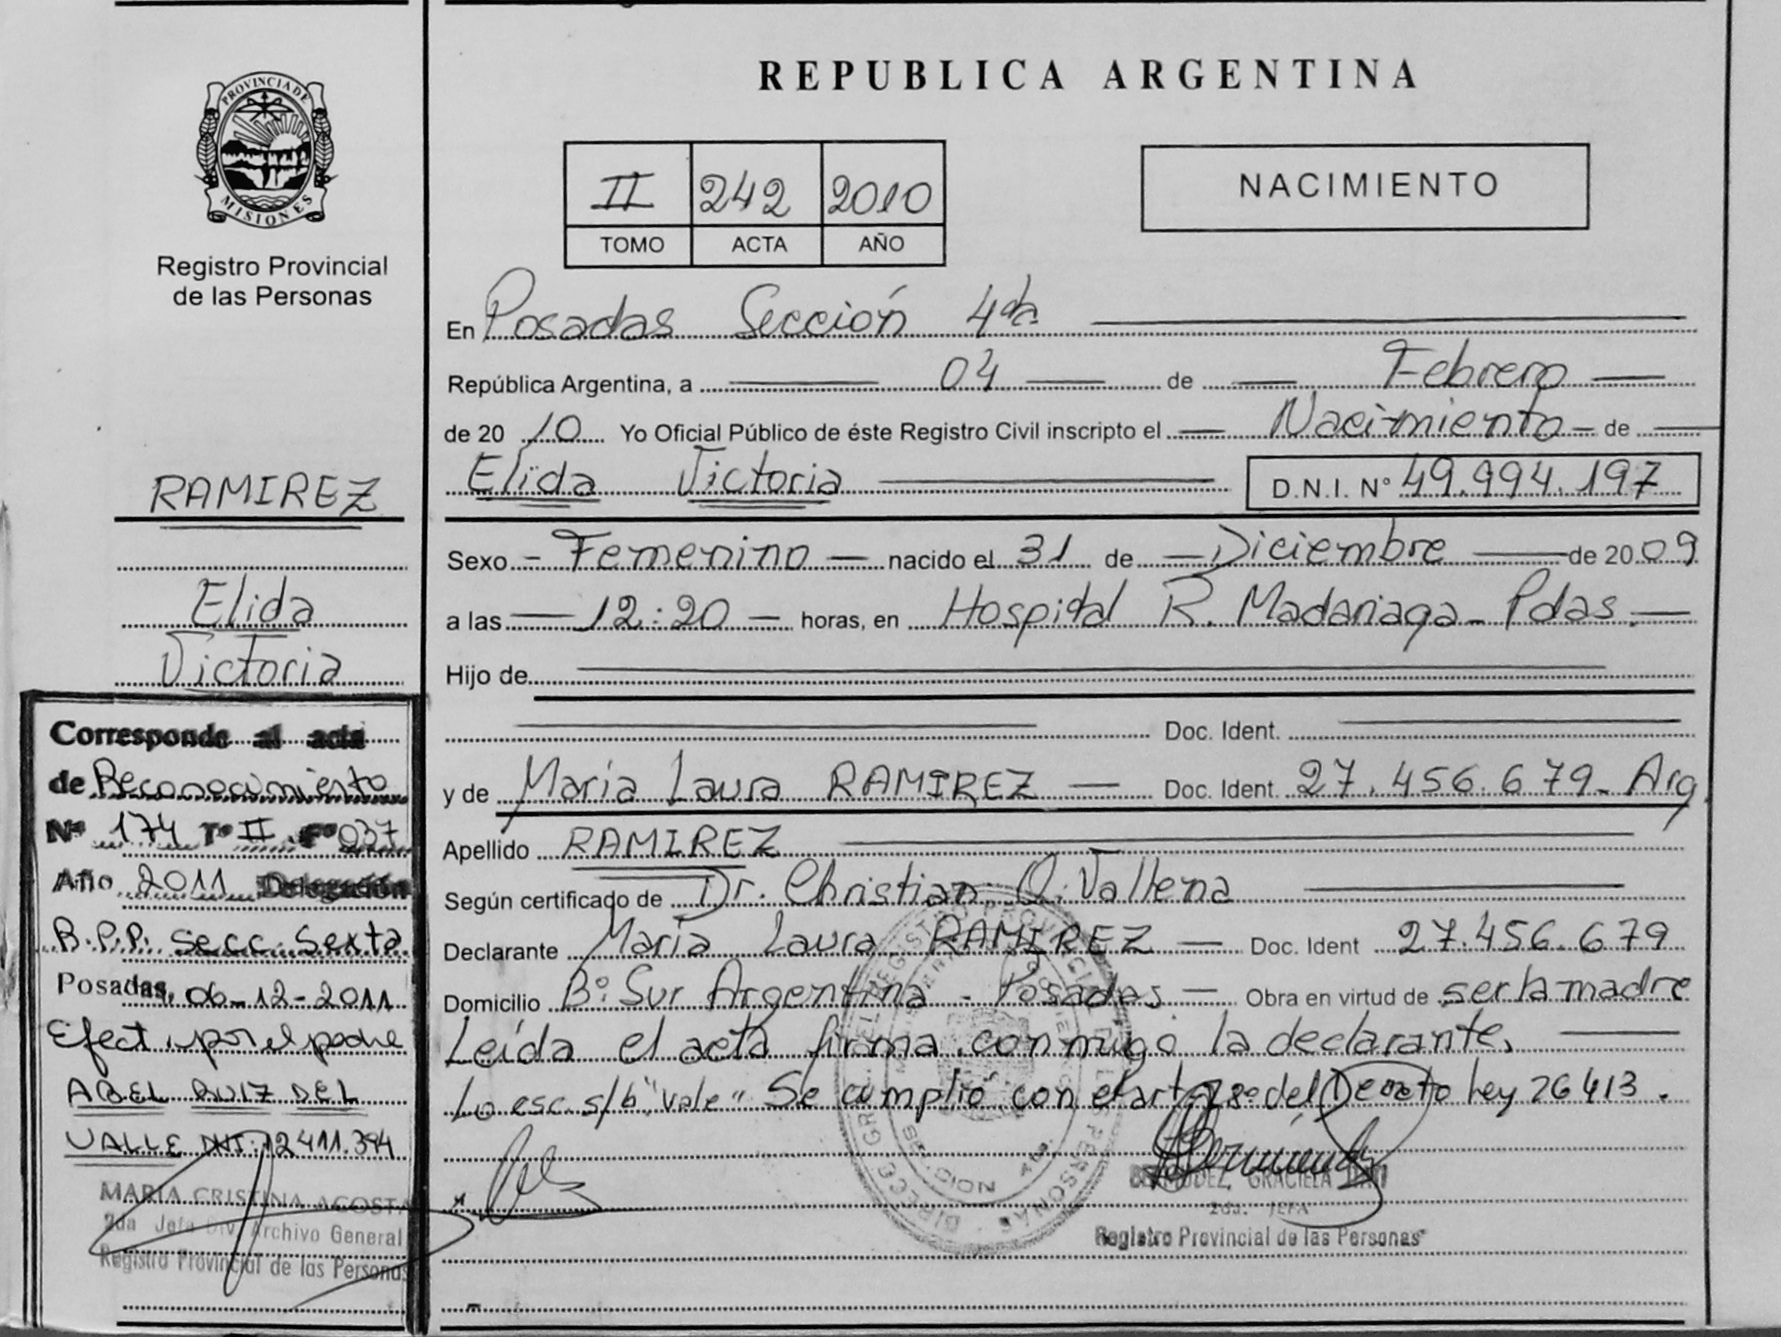 PROVINCIA DE
MISIONES
Registro Provincial
de las Personas
RAMIREZ
Elida
Victoria
Corresponde al acta
de Reconocimiento
Nº 174 Tº II Fº 037
Año 2011 Delegación
R.P.P. Secc. Sexta
Posadas, 06-12-2011
Efect. por el padre
ABEL RUIZ DEL
VALLE DNI: 12411.394
MARIA CRISTINA ACOSTA
2da Jefa Div. Archivo General
Registro Provincial de las Personas
REPUBLICA ARGENTINA
II 242 2010
TOMO ACTA AÑO
NACIMIENTO
En Posadas Sección 4da
República Argentina, a 04 de Febrero
de 20 10 Yo Oficial Público de éste Registro Civil inscripto el Nacimiento de
Elida Victoria D.N.I. Nº 49.994.197
Sexo - Femenino nacido el 31 de Diciembre de 20 09
a las 12:20 horas, en Hospital R. Madariaga - Pdas.
Hijo de
Doc. Ident.
y de Maria Laura RAMIREZ Doc. Ident. 27.456.679 - Arg
Apellido RAMIREZ
Según certificado de Dr. Christian O. Vallena
Declarante Maria Laura RAMIREZ Doc. Ident 27.456.679
Domicilio Bº Sur Argentina - Posadas Obra en virtud de ser la madre
Leída el acta firma conmigo la declarante,
Lo esc. s/b "vale" Se cumplió con el art. 28º del Decreto Ley 26413.
GRACIELA
2da. JEFA
Registro Provincial de las Personas